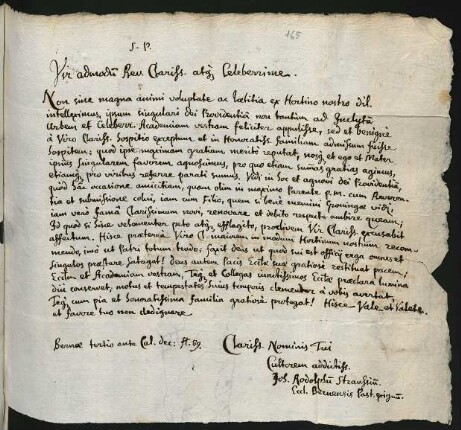 165
S. P.
Vir admodū Reu Clariss. atq; Celeberrime.
Non sine magna animi voluptate ac lætitia ex Hortino nostro dil.
intelleximus, ipsum singulari dei Providentiâ non tantum ad Inclytā
Urbem et Celeberr. Academiam vestram feliciter appulisse, sed et benignè
à Viro Clariss. Sospitio exceptum et in Honoratiss. familiam admissum fuisse
Sospitem; quod ipse maximam gratiam meritò reputat, nosq; et ego et Mater
ipsius singularem favorem agnoscimus, pro quo etiam summas gratias agimus,
etiamq; pro viribus referre parati sumus. Vidi in hoc et agnovi dei Providentiā,
quòd hâc occasione amicitiam, quam olim in maximo Parente p.m. cum
et submissione colui, iam cum Filio, quem si benè memini Groningæ vidi,
iam verò famâ Clarissimum novi, renovare et debito respectu ambire queam;
Id quod si sine peto atq; efflagito, proclivem Vir Clariss.
affectum. Hisce prætereà Viro T. maiorem in modum Hortinum nostrum recom-
mendo, imò ut Patri totum trado; faxit deus ut quod sui est officij erga omnes et
singulos præstare satagat! deus autem Pacis Ecclæ suæ gratiosè restituat pacem,
Ecclam et Academiam vestram, Teq; et Collegas Ecclæ præclara lumina
diu conservet, motus et tempestates huius temporis clementer à vobis avertat,
Teq; cum pia et honoratissima familia gratiosè protegat! Hisce Vale et Valeto
et favore tuo non dedignere
Bernæ tertio ante Cal. dec: 89.
Clariss. Nominis Tui
Cultorem addictiss.
Joh. Rodolphū
Eccl. Bernensis Past.